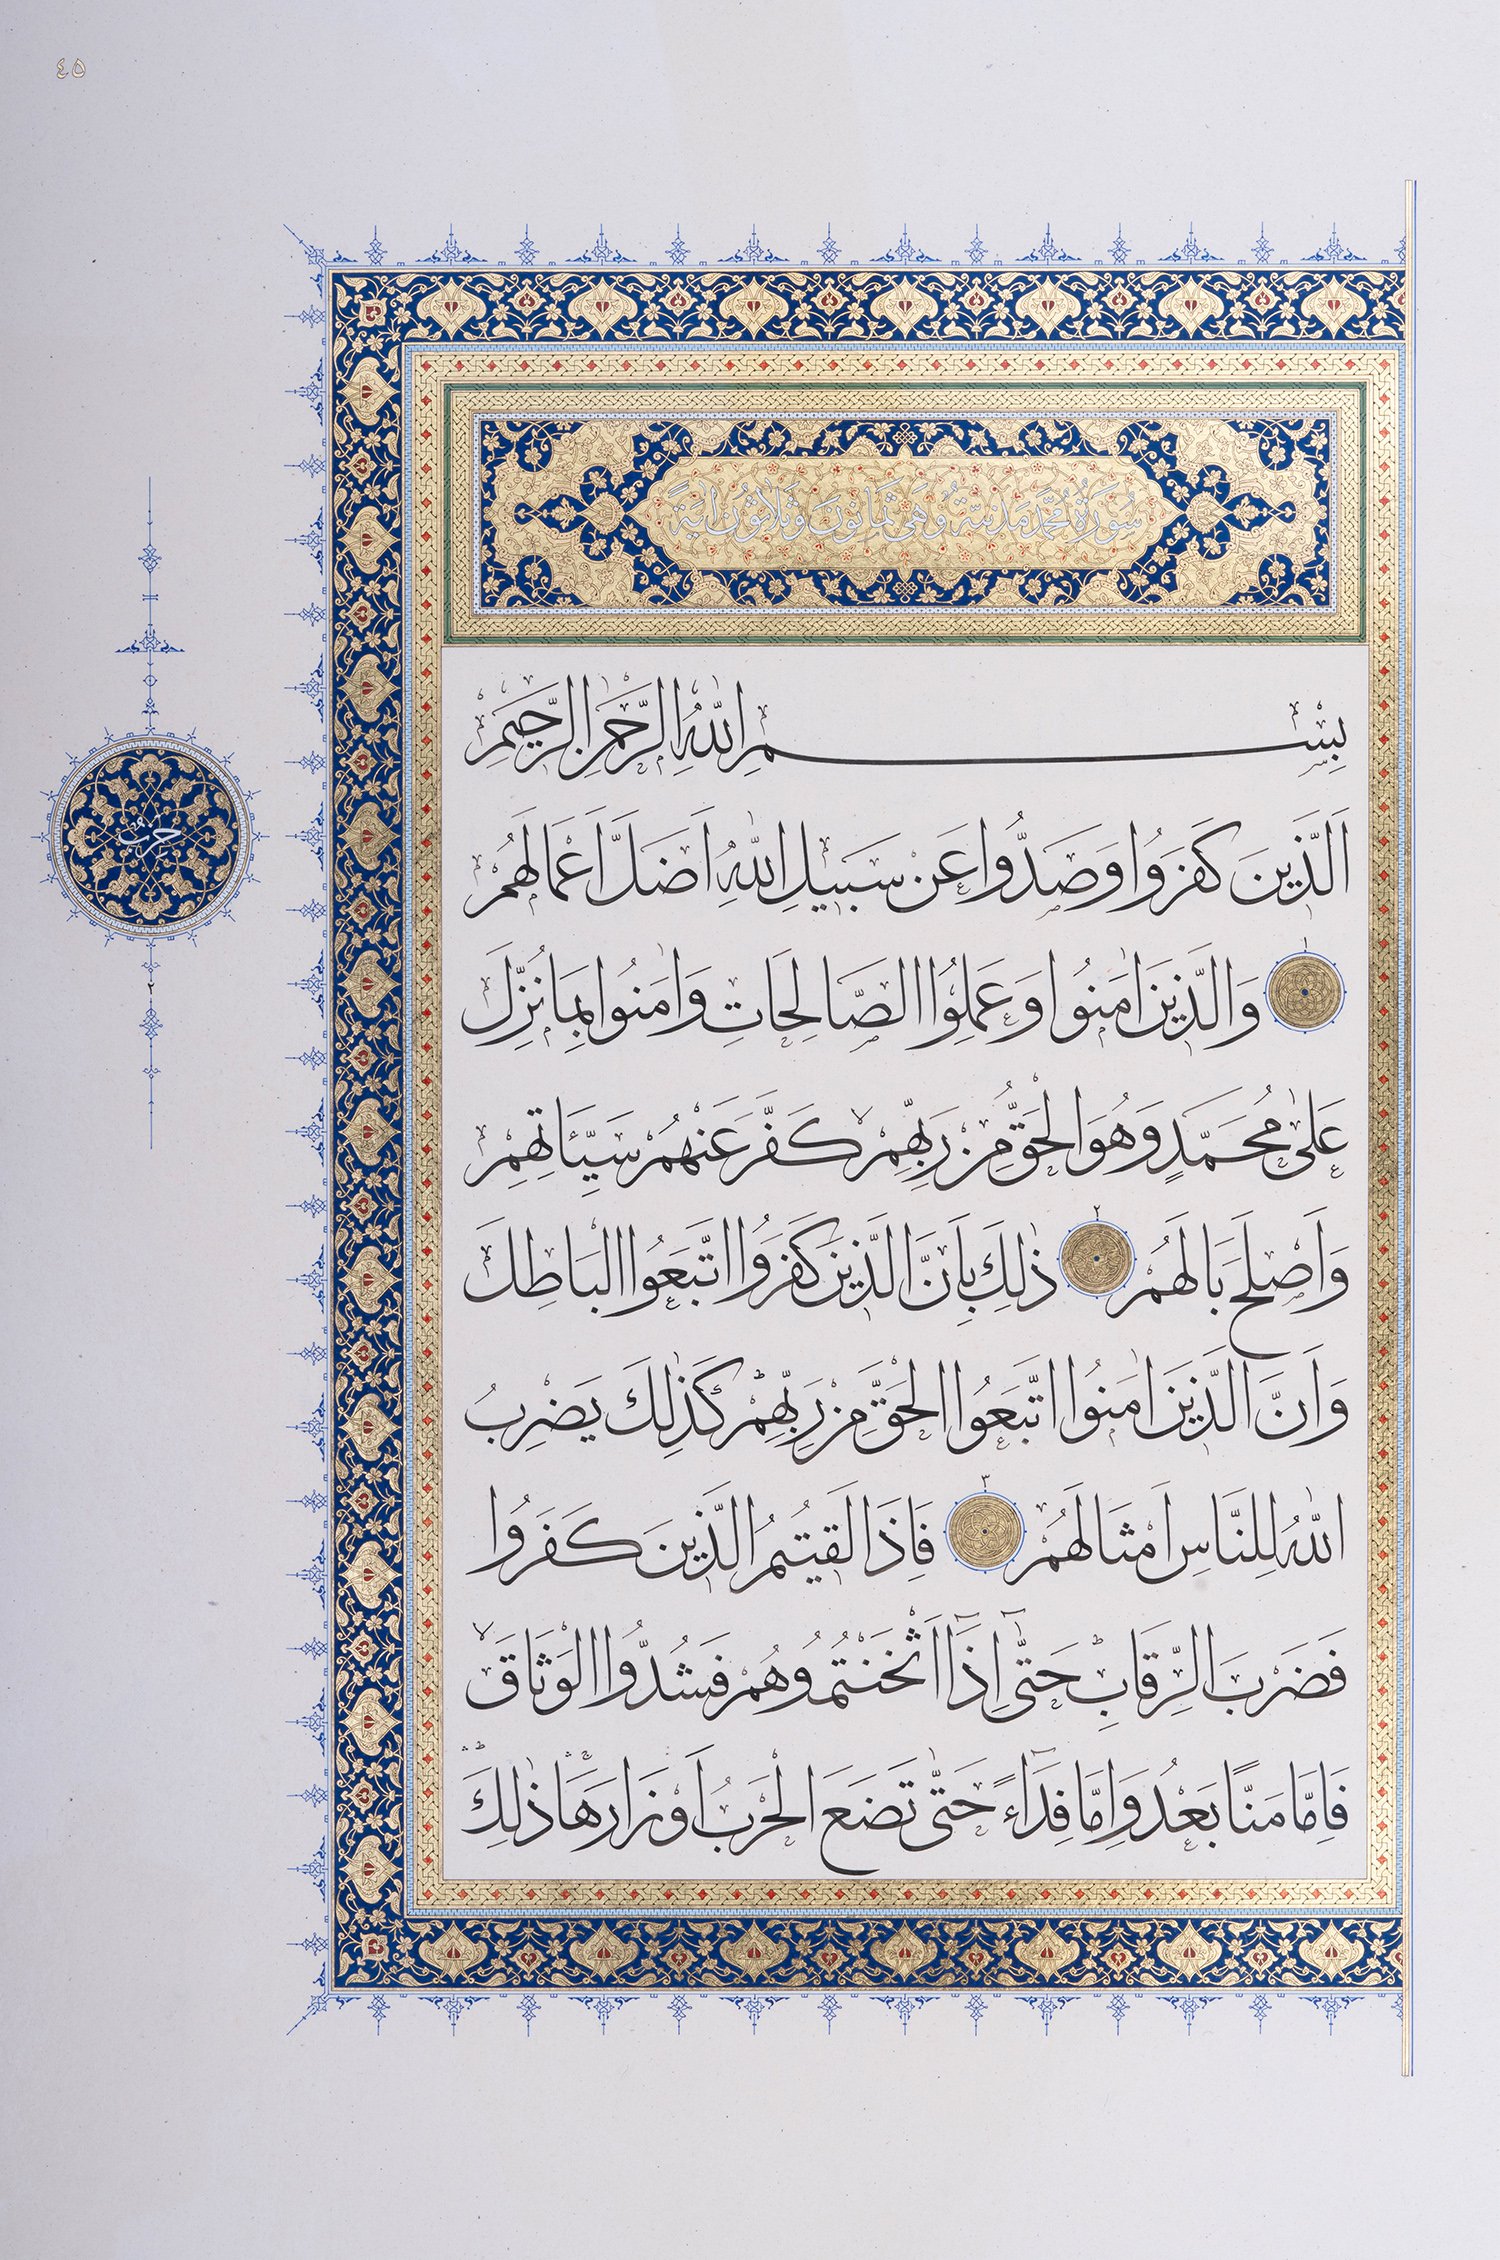 ٤٥
سُورَةُ مُحَمَّدٍ مَدَنِيَّةٌ وَهِيَ ثَمَانُونَ وَثَلَاثُونَ اٰيَةً
بِسْمِ اللّٰهِ الرَّحْمٰنِ الرَّحِيمِ
اَلَّذِينَ كَفَرُوا وَصَدُّوا عَنْ سَبِيلِ اللّٰهِ اَضَلَّ اَعْمَالَهُمْ
حزب
١ وَالَّذِينَ اٰمَنُوا وَعَمِلُوا الصَّالِحَاتِ وَاٰمَنُوا بِمَا نُزِّلَ
٢
عَلٰى مُحَمَّدٍ وَهُوَ الْحَقُّ مِنْ رَبِّهِمْ ۙ كَفَّرَ عَنْهُمْ سَيِّـَٔاتِهِمْ
وَاَصْلَحَ بَالَهُمْ ٢ ذٰلِكَ بِاَنَّ الَّذِينَ كَفَرُوا اتَّبَعُوا الْبَاطِلَ
وَاَنَّ الَّذِينَ اٰمَنُوا اتَّبَعُوا الْحَقَّ مِنْ رَبِّهِمْ ۜ كَذٰلِكَ يَضْرِبُ
اللّٰهُ لِلنَّاسِ اَمْثَالَهُمْ ٣ فَاِذَا لَقِيتُمُ الَّذِينَ كَفَرُوا
فَضَرْبَ الرِّقَابِ ۜ حَتّٰٓى اِذَٓا اَثْخَنْتُمُوهُمْ فَشُدُّوا الْوَثَاقَ ۙ
فَاِمَّا مَنًّا بَعْدُ وَاِمَّا فِدَٓاءً حَتّٰى تَضَعَ الْحَرْبُ اَوْزَارَهَا ۛ ذٰلِكَ ۛ